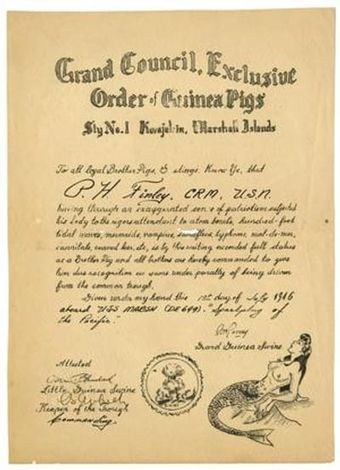 Grand Council, Exclusive
Order of Guinea Pigs
Sty No. 1 Kwajalein, Marshall Islands
To all loyal Brother Pigs, & slings: Know Ye, that
P. H. Finley, CRM, U.S.N.
having through an exaggerated sense of patriotism subjected
his body to the rigors attendant to atom bombs, hundred-foot
tidal waves, mermaids, vampires, typhoons, mad-dr-men,
cannibals, etc., is by this writing accorded full status
as a Brother Pig and all brothers are hereby commanded to give
him due recognition as same under penalty of being driven
from the common trough.
Given under my hand this 1st day of July 1946
aboard USS (DE 649). "
of the Pacific."
Grand Guinea Swine
Attested
Little Guinea Swine
Keeper of the Trough
Commanding.